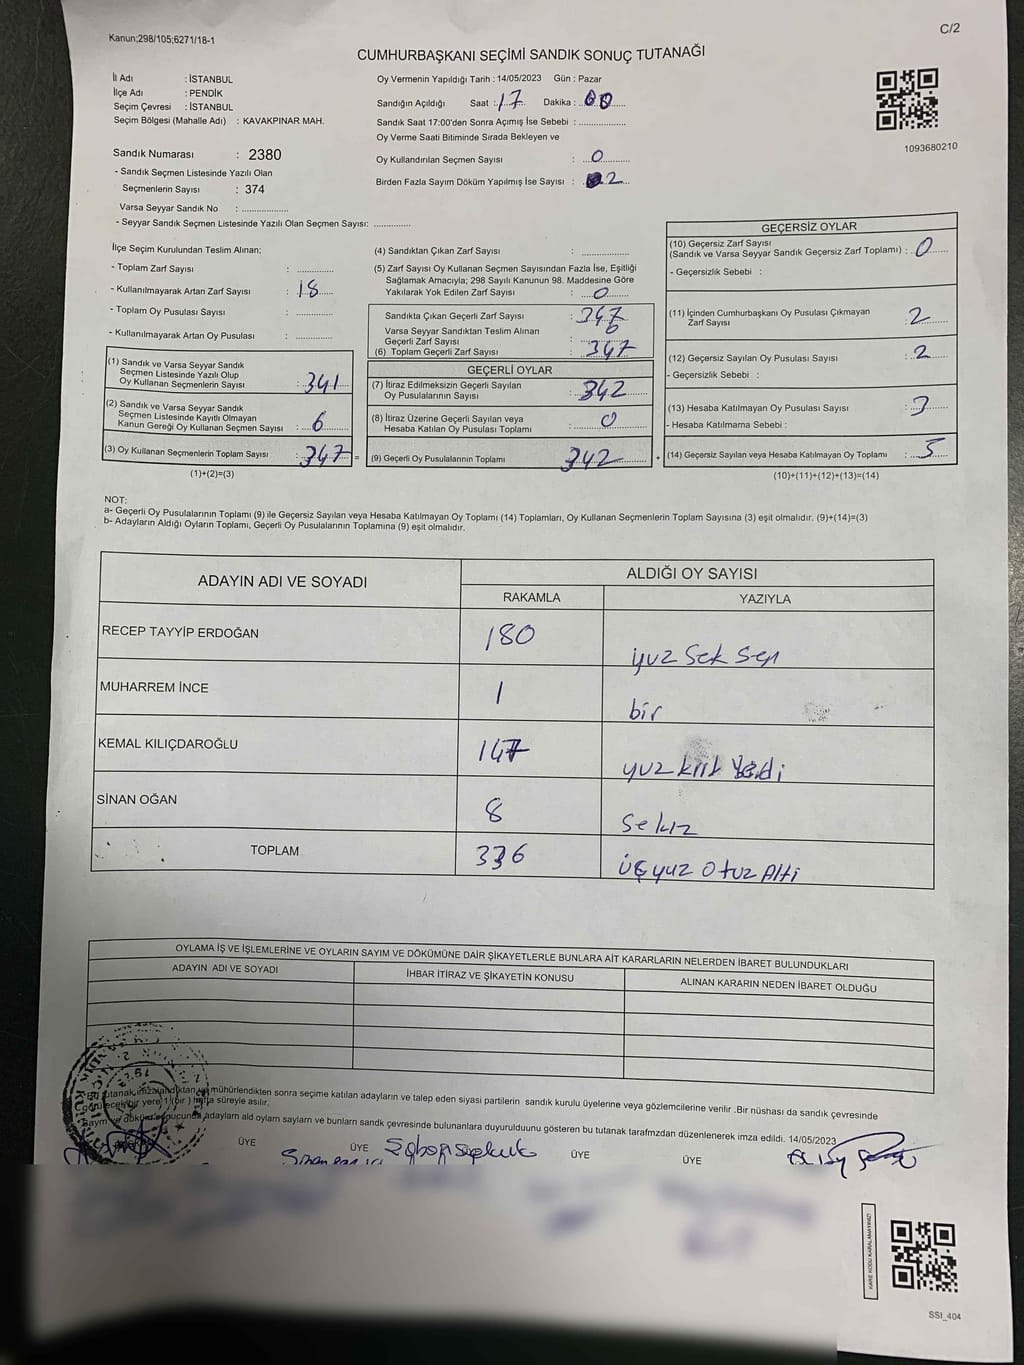 Kanun;298/105;6271/18-1
C/2
CUMHURBAŞKANI SEÇİMİ SANDIK SONUÇ TUTANAĞI
İl Adı : İSTANBUL
İlçe Adı : PENDİK
Seçim Çevresi : İSTANBUL
Seçim Bölgesi (Mahalle Adı) : KAVAKPINAR MAH.
Sandık Numarası : 2380
- Sandık Seçmen Listesinde Yazılı Olan
Seçmenlerin Sayısı : 374
Varsa Seyyar Sandık No : ..................
- Seyyar Sandık Seçmen Listesinde Yazılı Olan Seçmen Sayısı: ..............
Oy Vermenin Yapıldığı Tarih : 14/05/2023 Gün : Pazar
Sandığın Açıldığı Saat : 17 Dakika : 00
Sandık Saat 17:00'den Sonra Açımış İse Sebebi : ..................
Oy Verme Saati Bitiminde Sırada Bekleyen ve
Oy Kullandırılan Seçmen Sayısı : 0
Birden Fazla Sayım Döküm Yapılmış İse Sayısı : 2
1093680210
İlçe Seçim Kurulundan Teslim Alınan;
- Toplam Zarf Sayısı : ..............
- Kullanılmayarak Artan Zarf Sayısı : 18
- Toplam Oy Pusulası Sayısı : ..............
- Kullanılmayarak Artan Oy Pusulası : ..............
(1) Sandık ve Varsa Seyyar Sandık
Seçmen Listesinde Yazılı Olup
Oy Kullanan Seçmenlerin Sayısı : 341
(2) Sandık ve Varsa Seyyar Sandık
Seçmen Listesinde Kayıtlı Olmayan
Kanun Gereği Oy Kullanan Seçmen Sayısı : 6
(3) Oy Kullanan Seçmenlerin Toplam Sayısı : 347 =
(1)+(2)=(3)
(4) Sandıktan Çıkan Zarf Sayısı : ..............
(5) Zarf Sayısı Oy Kullanan Seçmen Sayısından Fazla İse, Eşitliği
Sağlamak Amacıyla; 298 Sayılı Kanunun 98. Maddesine Göre
Yakılarak Yok Edilen Zarf Sayısı : 0
Sandıkta Çıkan Geçerli Zarf Sayısı : 347
Varsa Seyyar Sandıktan Teslim Alınan
Geçerli Zarf Sayısı :
(6) Toplam Geçerli Zarf Sayısı : 347
GEÇERLİ OYLAR
(7) İtiraz Edilmeksizin Geçerli Sayılan
Oy Pusulalarının Sayısı : 342
(8) İtiraz Üzerine Geçerli Sayılan veya
Hesaba Katılan Oy Pusulası Toplamı : 0
(9) Geçerli Oy Pusulalarının Toplamı 342 +
GEÇERSİZ OYLAR
(10) Geçersiz Zarf Sayısı
(Sandık ve Varsa Seyyar Sandık Geçersiz Zarf Toplamı) : 0
- Geçersizlik Sebebi :
(11) İçinden Cumhurbaşkanı Oy Pusulası Çıkmayan
Zarf Sayısı : 2
(12) Geçersiz Sayılan Oy Pusulası Sayısı : 2
- Geçersizlik Sebebi :
(13) Hesaba Katılmayan Oy Pusulası Sayısı :
- Hesaba Katılmama Sebebi :
(14) Geçersiz Sayılan veya Hesaba Katılmayan Oy Toplamı : 5
(10)+(11)+(12)+(13)=(14)
NOT:
a- Geçerli Oy Pusulalarının Toplamı (9) ile Geçersiz Sayılan veya Hesaba Katılmayan Oy Toplamı (14) Toplamları, Oy Kullanan Seçmenlerin Toplam Sayısına (3) eşit olmalıdır. (9)+(14)=(3)
b- Adayların Aldığı Oyların Toplamı, Geçerli Oy Pusulalarının Toplamına (9) eşit olmalıdır.
ADAYIN ADI VE SOYADI
ALDIĞI OY SAYISI
RAKAMLA YAZIYLA
RECEP TAYYİP ERDOĞAN 180 yuz Sek Sen
MUHARREM İNCE 1 bir
KEMAL KILIÇDAROĞLU 147 yuz kırk Yedi
SİNAN OĞAN 8 Sekız
TOPLAM 336 üçyuz Otuz Altı
OYLAMA İŞ VE İŞLEMLERİNE VE OYLARIN SAYIM VE DÖKÜMÜNE DAİR ŞİKAYETLERLE BUNLARA AİT KARARLARIN NELERDEN İBARET BULUNDUKLARI
ADAYIN ADI VE SOYADI İHBAR İTİRAZ VE ŞİKAYETİN KONUSU ALINAN KARARIN NEDEN İBARET OLDUĞU
tutanak imzalandıktan ve mühürlendikten sonra seçime katılan adayların ve talep eden siyasi partilerin sandık kurulu üyelerine veya gözlemcilerine verilir .Bir nüshası da sandık çevresinde
görülecek bir yere 1 (bir ) hafta süreyle asılır.
Saym ve dökün sonucunda adayların ald oyların sayların ve bunların sandık çevresinde bulunanlara duyurulduunu gösteren bu tutanak tarafmzdan düzenlenerek imza edildi. 14/05/2023
ÜYE ÜYE ÜYE ÜYE
KARE KODU KARALAMAYINIZ!
SSİ_404